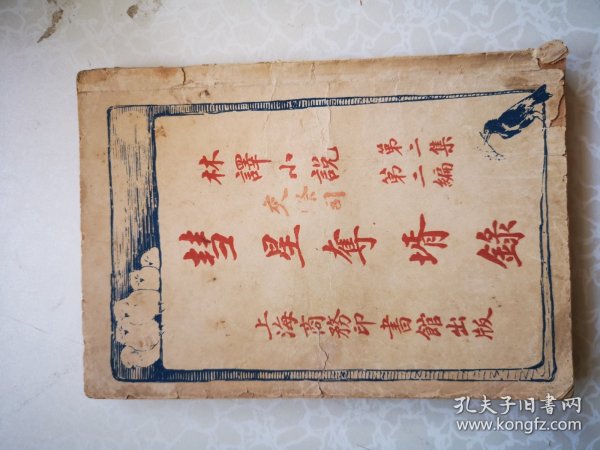 林譯小說
第二集
第二編
彗星奪壻錄
上海商務印書館出版
孔夫子旧书网
www.kongfz.com